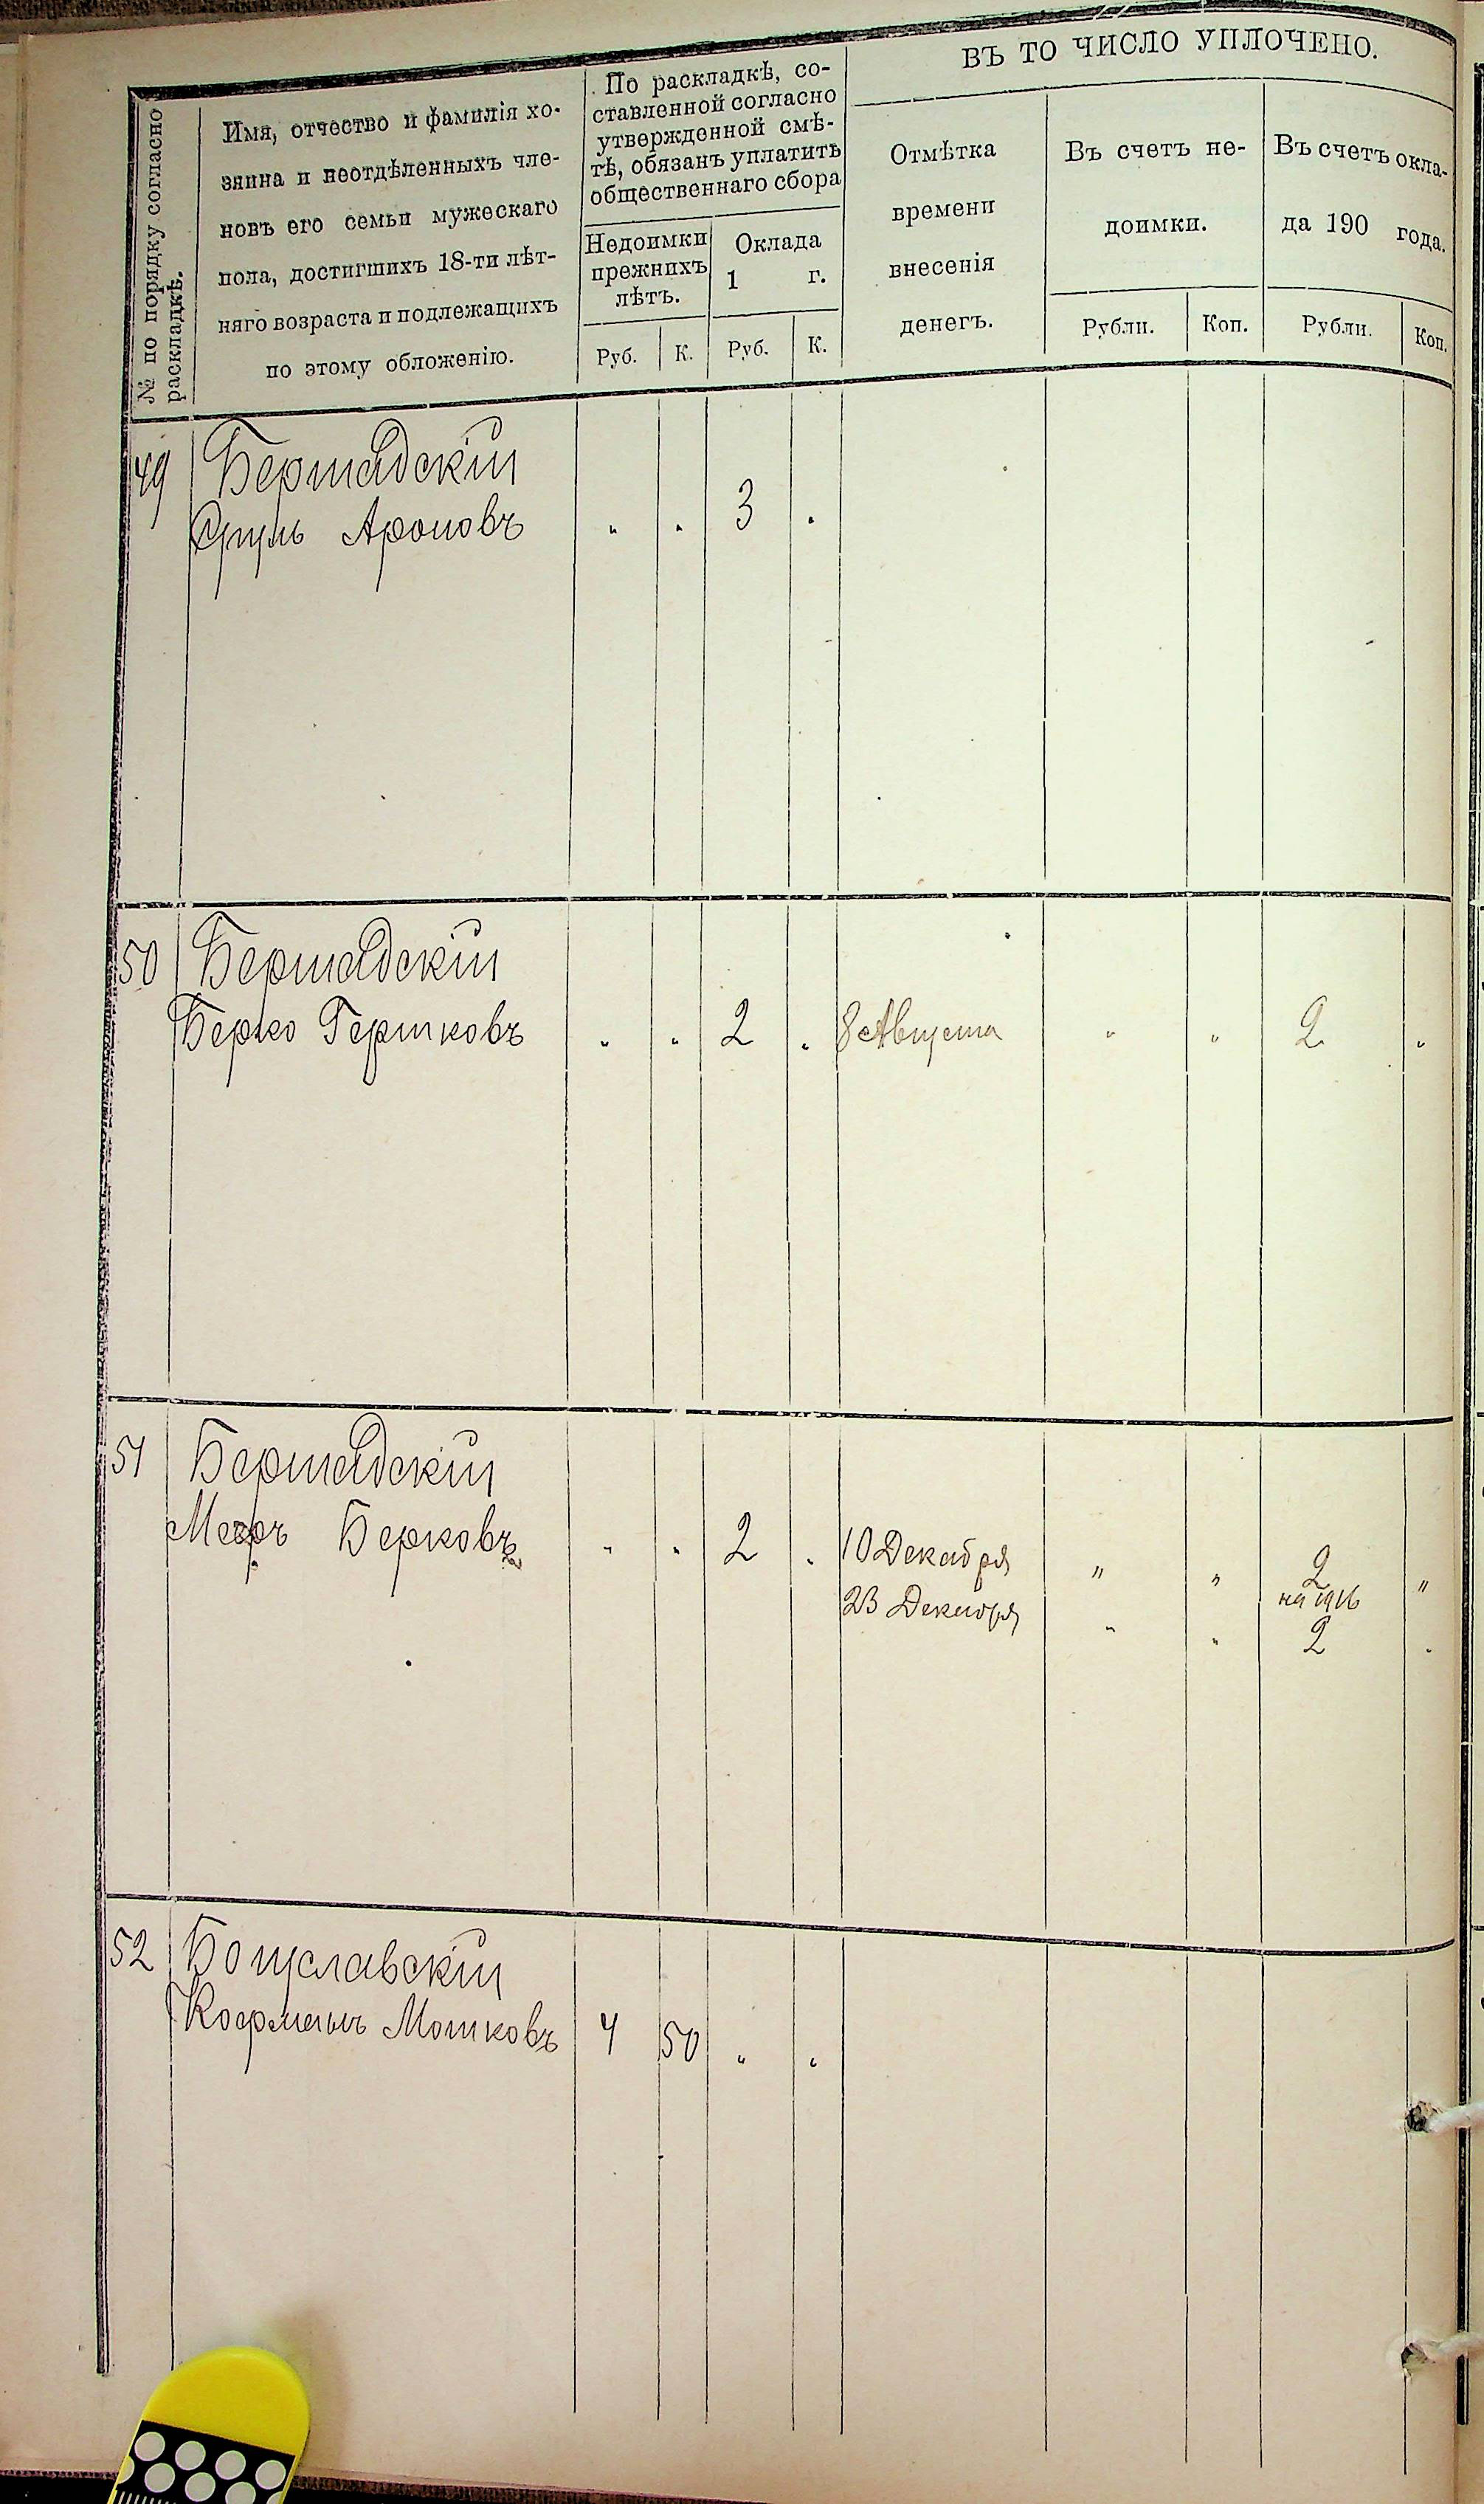 № по порядку согласно
раскладкѣ.
Имя, отчество и фамилія хо-
зяина и неотдѣленныхъ чле-
новъ его семьи мужескаго
пола, достигшихъ 18-ти лѣт-
няго возраста и подлежащихъ
по этому обложенію.
По раскладкѣ, со-
ставленной согласно
утвержденной смѣ-
тѣ, обязанъ уплатить
общественнаго сбора
Недоимки
прежнихъ
лѣтъ.
Оклада
1 г.
Руб. К. Руб. К.
ВЪ ТО ЧИСЛО УПЛОЧЕНО.
Отмѣтка
времени
внесенія
денегъ.
Въ счетъ не-
доимки.
Въ счетъ окла-
да 190 года.
Рубли. Коп. Рубли. Коп.
49 Бершадскій
Сруль Ароновъ „ „ 3 „
50 Бершадскій
Берко Гершковъ „ „ 2 „ 8 Августа „ „ 2 „
51 Бершадскій
Мееръ Берковъ „ „ 2 „ 10 Декабря „ „ 2 „
на 1916
23 Декабря „ „ 2 „
52 Богуславскій
Кофманъ Мошковъ 4 50 „ „